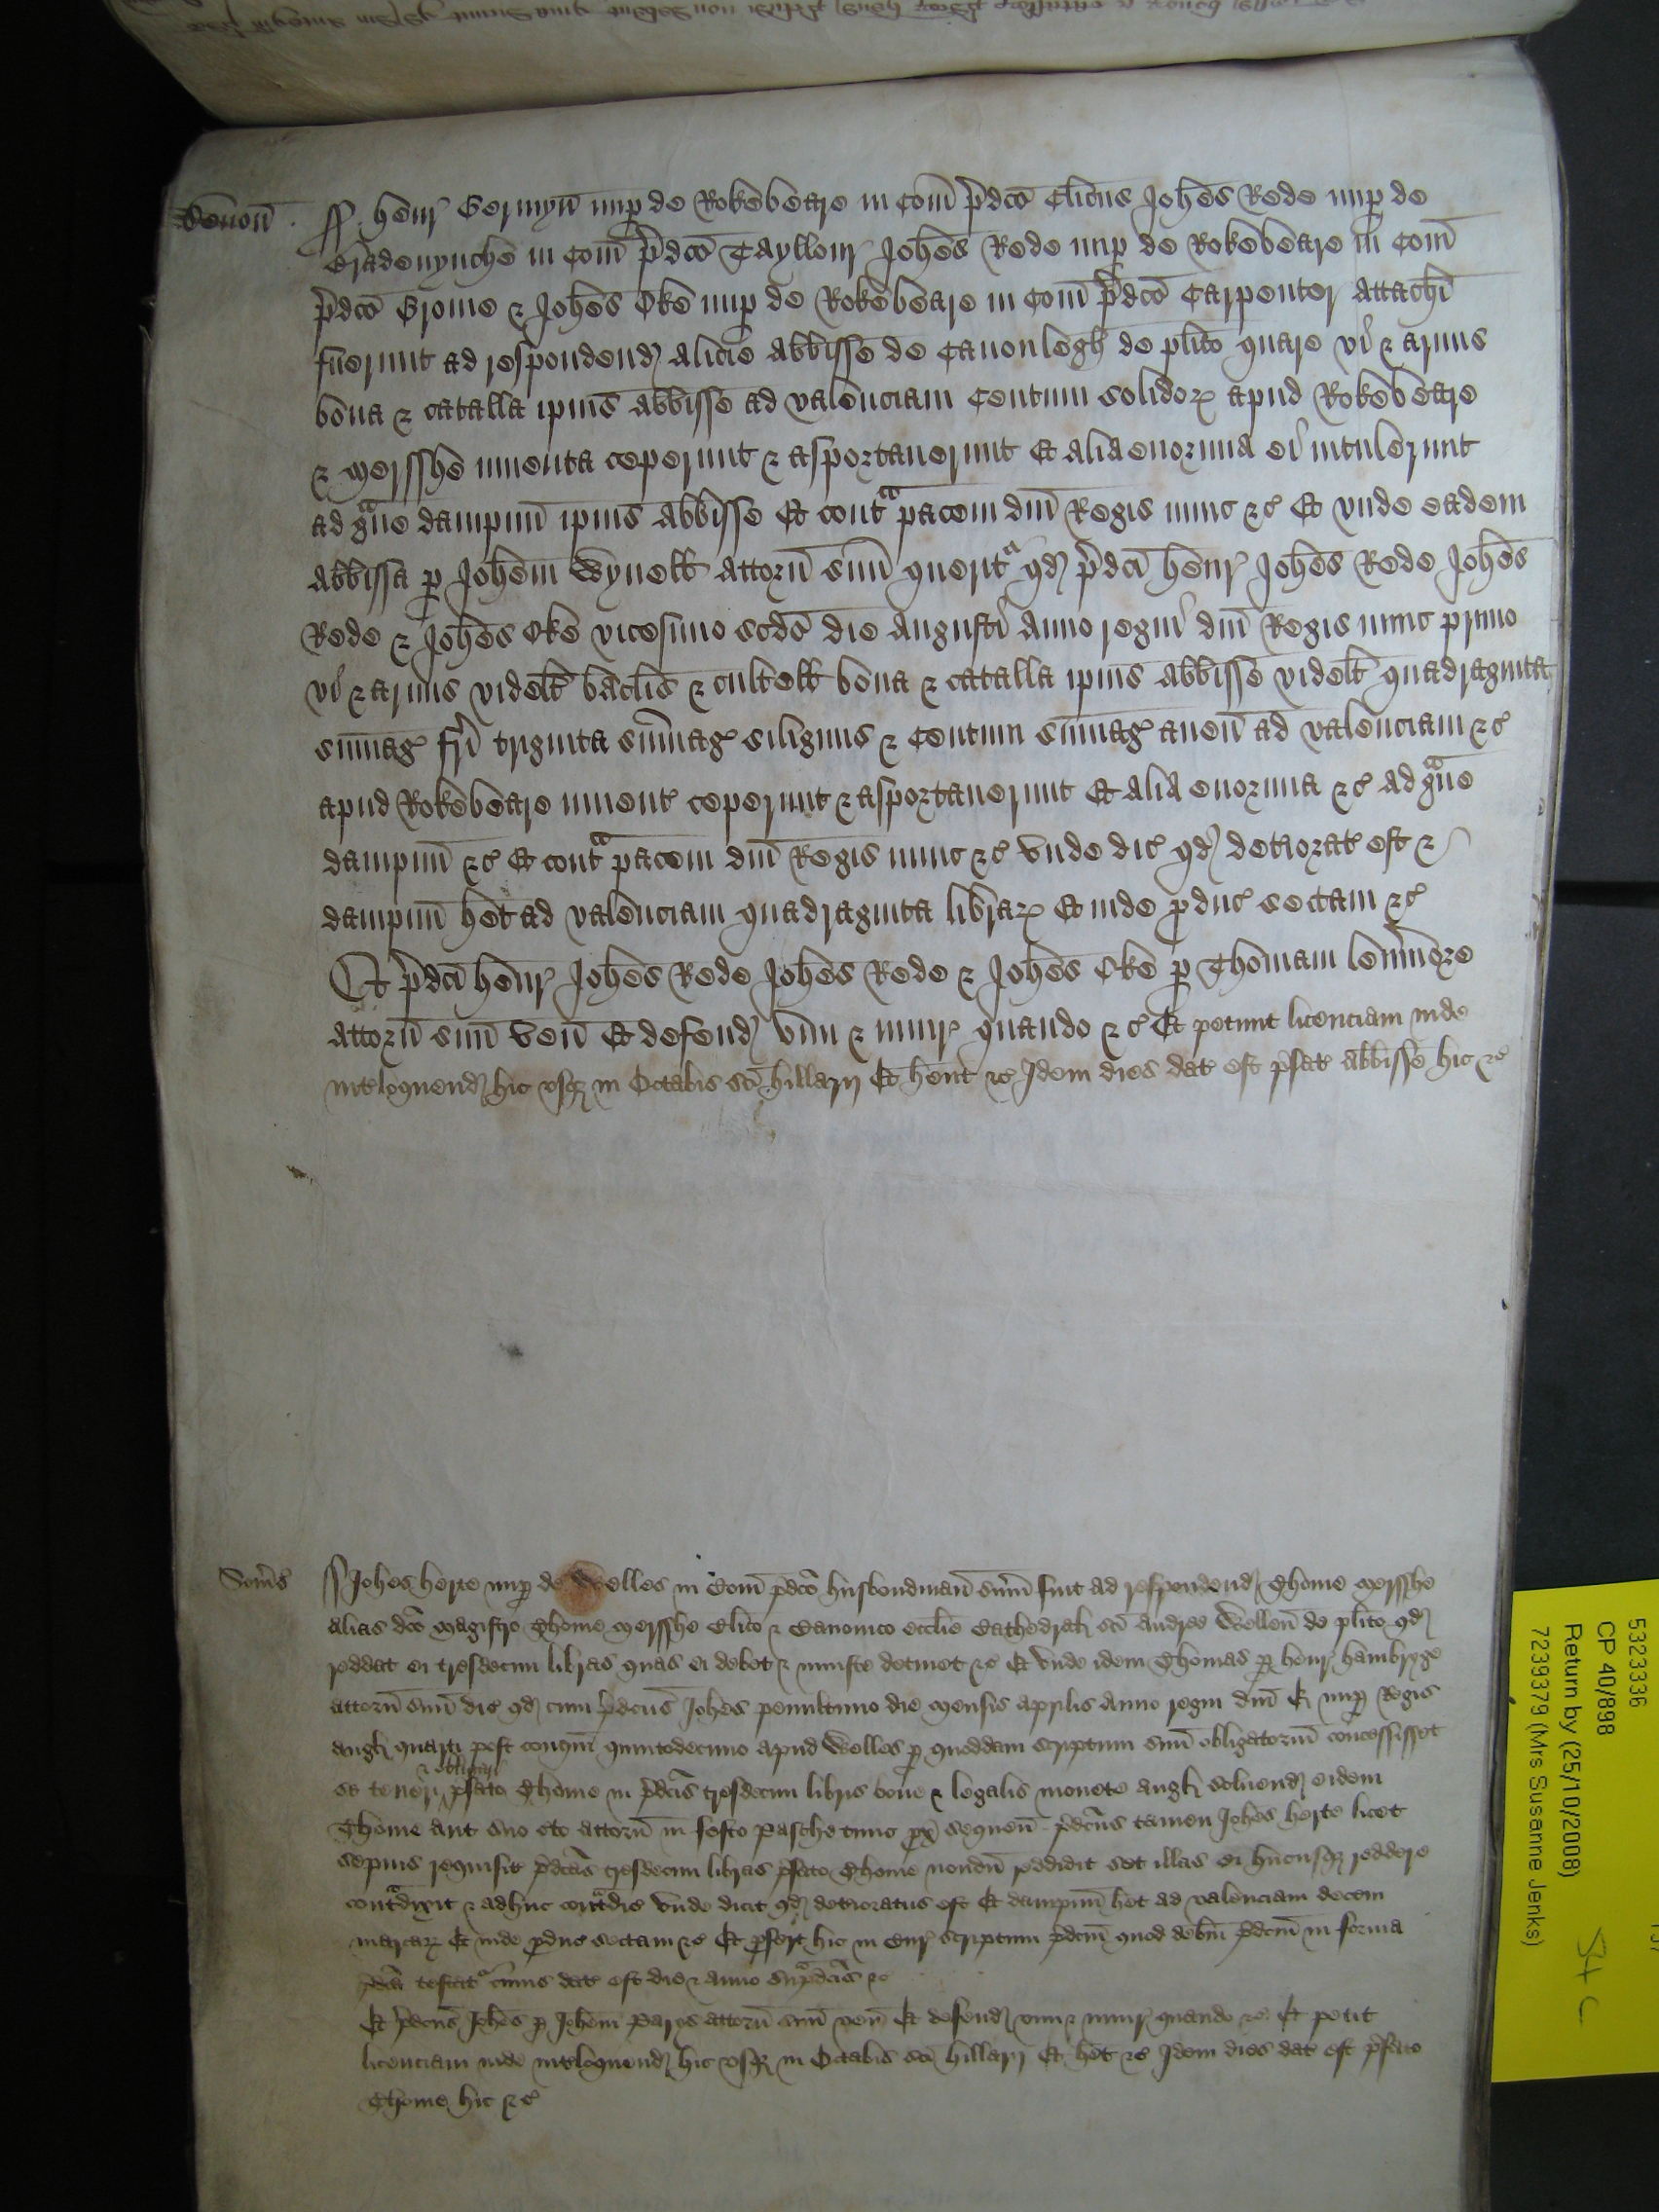 Devoñ ss Henr̄ Germyn̄ nup̱ de Rokebeare in Com̄ p̄dc̄o Clicus Joh̄es Rede nup̱ de
Bradenynche in Com̄ p̄dc̄o Tayllour Joh̄es Rede nup̱ de Rokebeare in Com̄
p̄dc̄o Grome & Joh̄es Oke nup̱ de Rokebeare in Com̄ p̄dc̄o Carpenter Attach̄
fuerunt ad respondend Alicie Abb̄isse de Canonlegh de pl̄ito quare vi & armis
bona & catalla ip̄ius Abb̄isse ad valenciam Centum solidoꝝ apud Rokebeare
& Mersshe inuenta ceperunt & asportauerunt Et alia enormia ei intulerunt
ad gͣue dampnū ip̄ius Abb̄isse Et contͣ pacem dn̄i Regis nunc &c Et vnde eadem
Abb̄issa p̱ Joh̄em Wynell Attorn̄ suū querit qd p̄dc̄i Henr̄ Joh̄es Rede Joh̄es
Rede & Joh̄es Oke vicesimo sc̄do die Augusti Anno regni dn̄i Regis nunc primo
vi & armis videlt̄ bac̄lis & cultell bona & catalla ip̄ius Abb̄isse videlt̄ quadraginta
summag fr̄i triginta summag siliginis & Centum summag auen̄ ad valenciam &c
apud Rokebeare inuent ceperunt & asportauerunt Et alia enormia &c ad gͣue
dampnū &c Et contͣ pacem dn̄i Regis nunc &c vnde dic qd detriorat est &
dampnū h̄et ad valenciam quadraginta libraꝝ Et inde p̱duc sectam &c
Et p̄dc̄i Henr̄ Joh̄es Rede Joh̄es Rede & Joh̄es Oke p̱ Thomam
attorn̄ suū ven̄ Et defend vim & iniur quando &c Et petunt licenciam inde
int̄loquend hic vsqꝫ in Octabis sc̄i Hillarij Et h̄ent &c Idem dies dat est p̄fat Abb̄isse hic &c
Som̄s ss Joh̄es Herte nup̱ de Welles in Com̄ p̄dc̄o husbondman̄ sum̄ fuit ad respondend Thome Mersshe
alias dc̄o Magistro Thome Mersshe Cl̄ico & Canonico eccl̄ie Cathedral sc̄i Andree Wellen̄ de pl̄ito qd
reddat ei tresdecim libras quas ei debet & iniuste detinet &c Et vnde idem Thomas p̱ Henr̄ Hambryge
attorn̄ suū dic qd cum p̄dc̄us Joh̄es penultimo die Mensis Aprilis Anno regni dn̄i E nup̱ Regis
Angl quarti post conqm̄ quintodecimo apud Welles p̱ quoddam scriptum suū obligatoriū concessisset
& obligari
se teneri p̄fato Thome in p̄dc̄is tresdecim libris bone & legalis monete Angl soluend eidem
Thome aut suo c̄to attorn̄ in festo Pasche tunc px̄ sequen̄ p̄dc̄us tamen Joh̄es Herte licet
sepius requisit p̄dc̄as tresdecim libras p̄fato Thome nondū reddidit set illas ei hucusqꝫ reddere
contͣdixit & adhuc contͣdic vnde dicit qd deterioratus est Et dampnū h̄et ad valenciam decem
marcaꝝ Et inde p̱duc sectam &c Et p̱fert hic in Cur scriptum p̄dc̄m quod debm̄ p̄dc̄m in forma
p̄dc̄a testatͬ cuius dat est die & anno sup̱dc̄is &c
Et p̄dc̄us Joh̄es p̱ Joh̄em Parys attorn̄ suū ven̄ Et defend vim & iniur quando &c Et petit
licenciam inde int̄loquend hic vsqꝫ in Octabis sc̄i Hillarij Et h̄et &c Idem dies dat est p̄fato
Thome hic &c
5323336
CP 40/898
Return by (25/10/2008)
7239379 (Mrs Susanne Jenks)